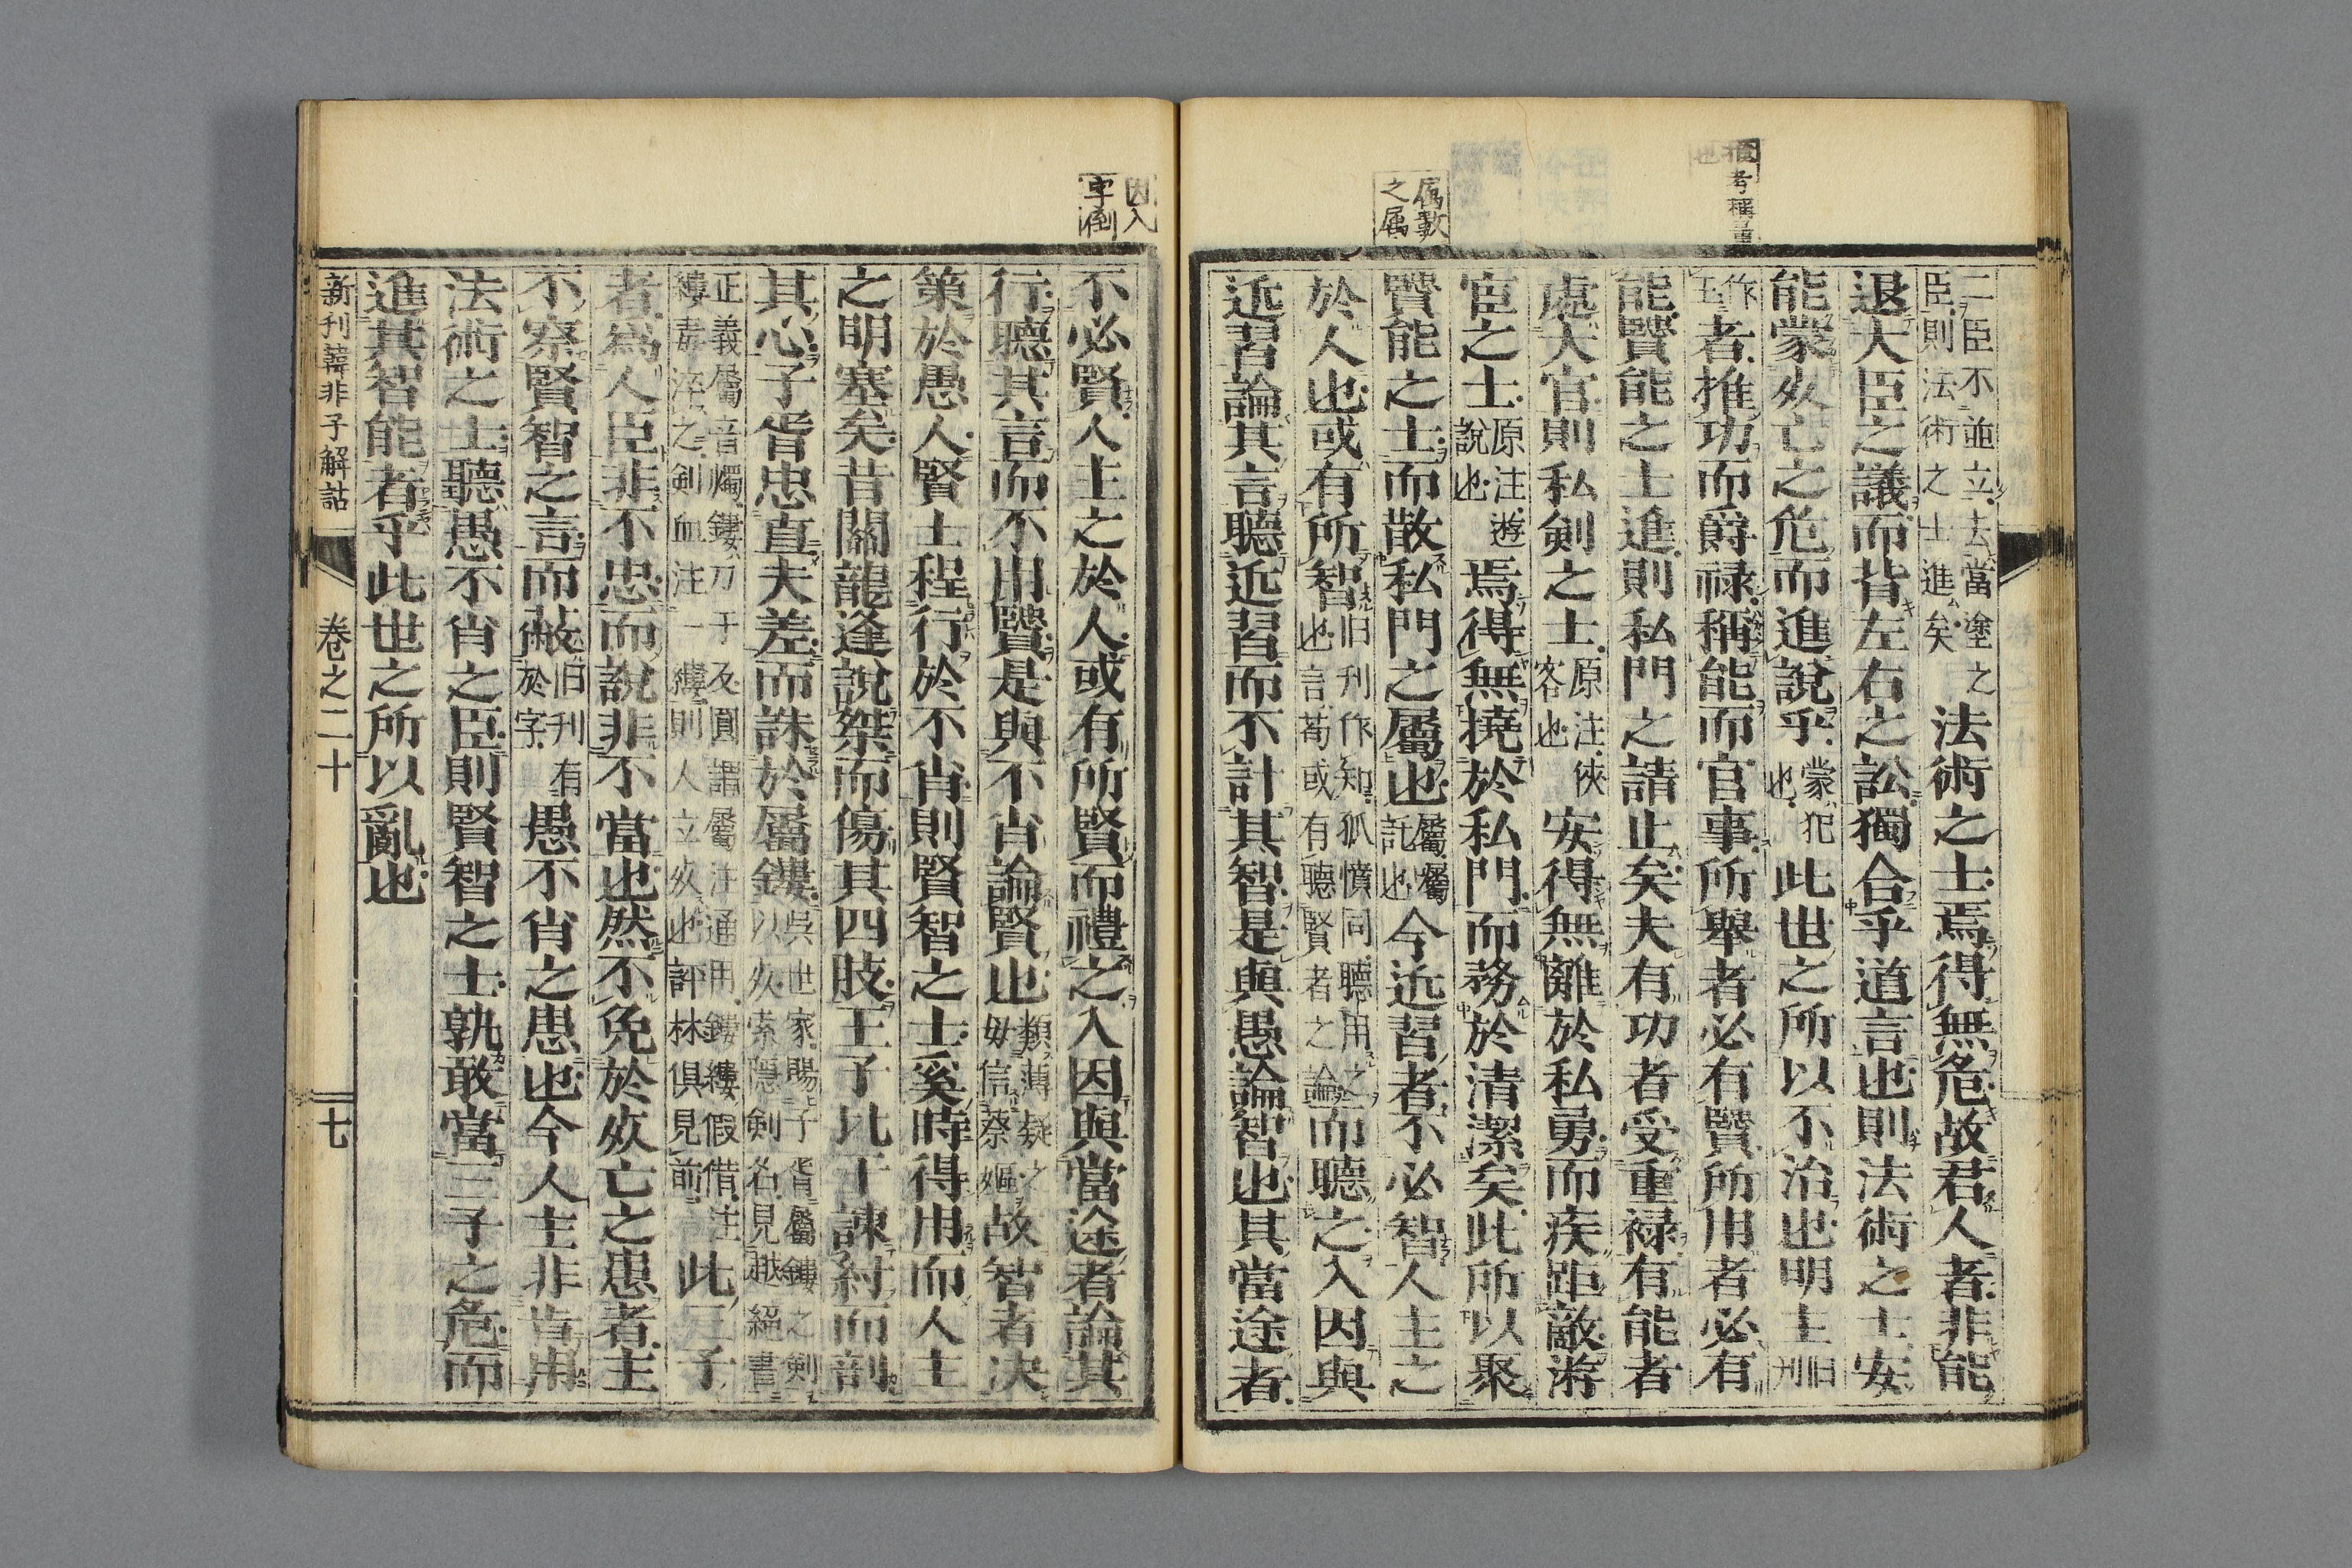 二臣不並立去當塗之臣則法術之士進矣法術之士焉得無危故君人者非能
退大臣之議而背左右之訟獨合乎道言也則法術之士安
能蒙死亡之危而進說乎蒙犯也此世之所以不治也明主旧刊
作王者推功而爵禄稱能而官事所舉者必有賢所用者必有
能賢能之士進則私門之請止矣夫有功者受重禄有能者
處大官則私剣之士原注俠客也安得無離於私勇而疾距敵游
宦之士原注遊說也焉得無撓於私門而務於清潔矣此所以聚
賢能之士而散私門之屬也屬囑託也今近習者不必智人主之
於人也或有所智旧刊作知狐憤同聽用之也言苟或有聽賢者之論而聽之入因與
近習論其言聽近習而不計其智是與愚論智也其當途者
屬數之屬
不必賢人主之於人或有所賢而禮之入因與當途者論其
行聽其言而不用賢是與不肖論賢也類薄疑之毋信蔡嫗故智者决
策於愚人賢士程行於不肖則賢智之士奚時得用而人主
之明塞矣昔關龍逢說桀而傷其四肢王子比干諫紂而剖
其心子胥忠直夫差而誅於屬鏤吳世家賜子胥屬鏤之剣以死索隱剣名見越絕書
正義屬音燭鏤力于反圓謂屬注通用鏤縷假借注縷毒淬之剣血注一縷則人立死也評林俱見前此三子
者爲人臣非不忠而說非不當也然不免於死亡之患者主
不察賢智之言而蔽旧刊有於字愚不肖之患也今人主非肯用
法術之士聽愚不肖之臣則賢智之士孰敢當三子之危而
進其智能者乎此世之所以亂也
因入字倒
新刊韓非子解詁
卷之二十
七